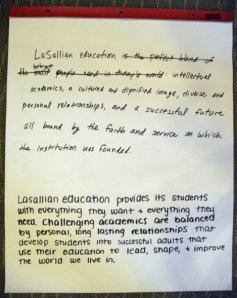 LaSallian education is the perfect blend of
what
the most people need in today's world intellectual
academics, a cultured and dignified image, diverse and
personal relationships, and a successful future
all bound by the faith and service on which
the institution was founded.
Lasallian education provides its students
with everything they want & everything they
need. Challenging academics are balanced
by personal, long lasting relationships that
develop students into successful adults that
use their education to lead, shape, & improve
the world we live in.